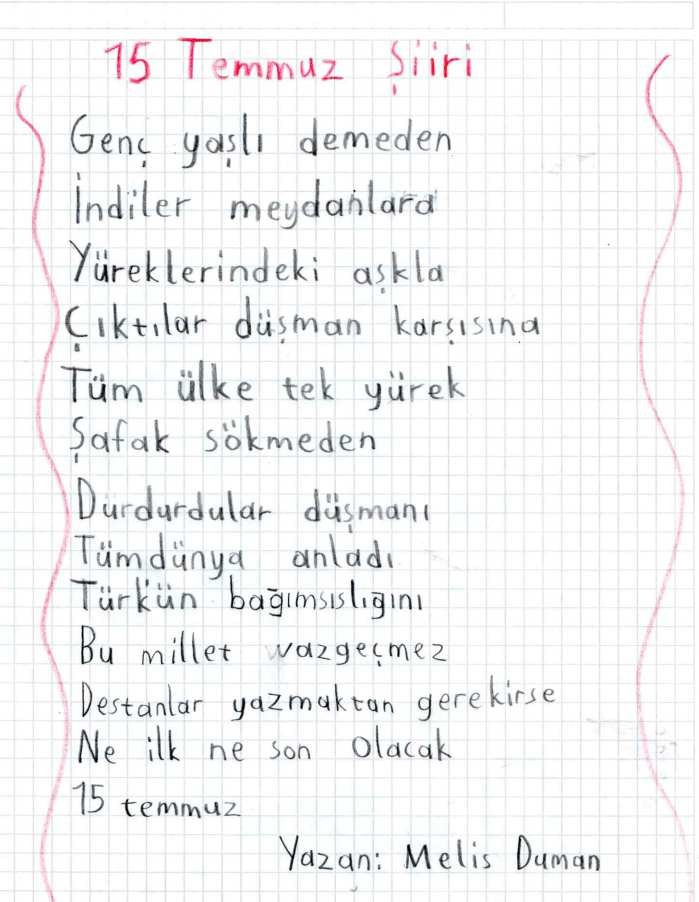 15 Temmuz Şiiri
Genç yaşlı demeden
İndiler meydanlara
Yüreklerindeki aşkla
Çıktılar düşman karşısına
Tüm ülke tek yürek
Şafak sökmeden
Durdurdular düşmanı
Tümdünya anladı
Türk'ün bağımsıslığını
Bu millet vazgeçmez
Destanlar yazmaktan gerekirse
Ne ilk ne son olacak
15 temmuz
Yazan: Melis Duman